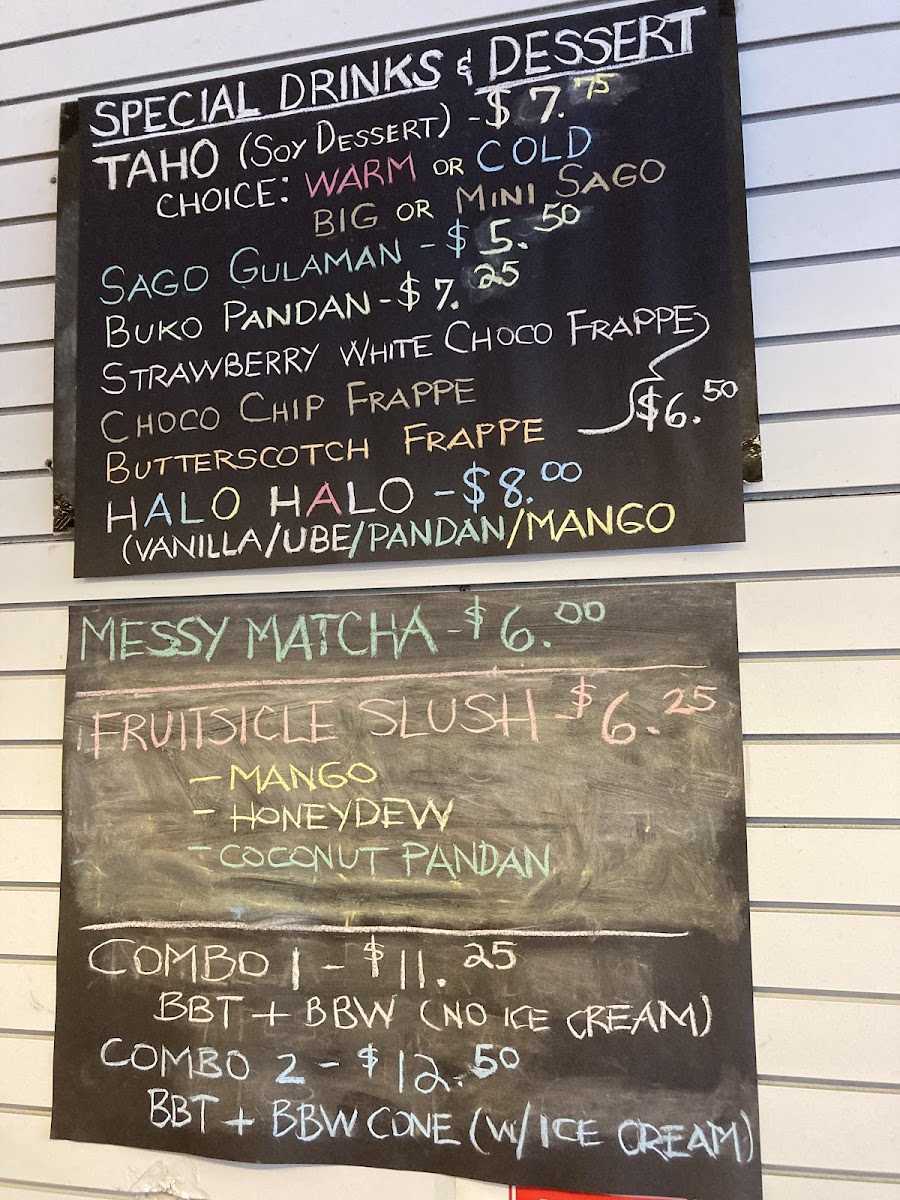 SPECIAL DRINKS & DESSERT
TAHO (SOY DESSERT) - $ 7.75
CHOICE: WARM OR COLD
BIG OR MINI SAGO
SAGO GULAMAN - $ 5.50
BUKO PANDAN - $ 7.25
STRAWBERRY WHITE CHOCO FRAPPE
CHOCO CHIP FRAPPE
$6.50
BUTTERSCOTCH FRAPPE
HALO HALO - $8.00
(VANILLA/UBE/PANDAN/MANGO
MESSY MATCHA - $6.00
FRUITSICLE SLUSH $6.25
- MANGO
- HONEYDEW
- COCONUT PANDAN
COMBO 1 - $11.25
BBT + BBW (NO ICE CREAM)
COMBO 2 - $12.50
BBT + BBW CONE (W/ICE CREAM)